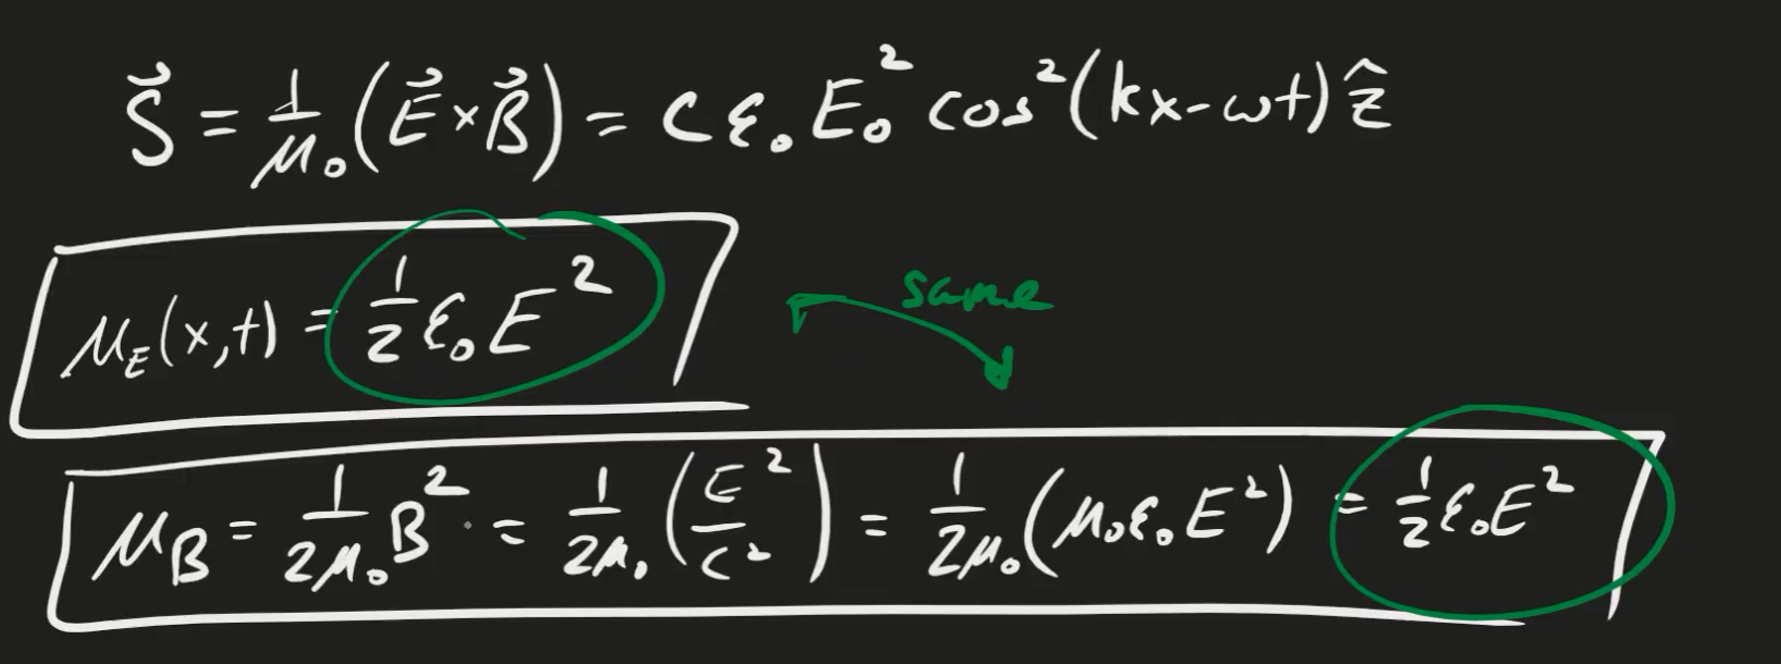 S⃗ = 1/μ₀ (E⃗ × B⃗) = c ε₀ E₀² cos²(kx - ωt) ẑ
μ_E(x,t) = 1/2 ε₀ E²
same
μ_B = 1/(2μ₀) B² · = 1/(2μ₀) (E²/c²) = 1/(2μ₀) (μ₀ε₀E²) = 1/2 ε₀E²